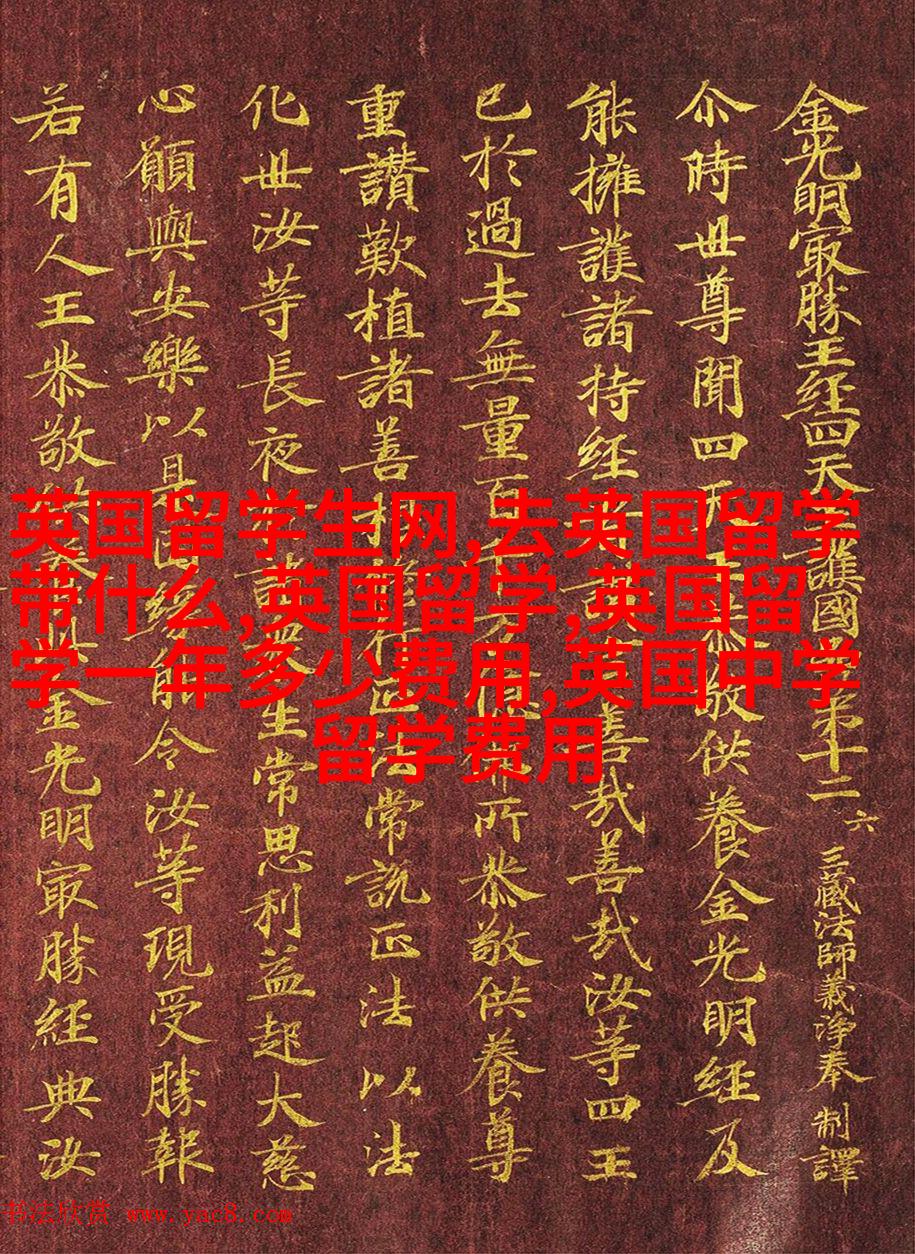 金光明冣勝王経四天護國第十二 六 三藏法師義淨奉 制譯
尒時世尊聞四恭敬供養金光明経及
能擁護諸持経善哉善哉汝等四王
已於過去無量百所恭敬供養尊
重讃歎植諸善法常說正法以法
化世汝等長夜諸生常思利益起大慈
心願與安樂以是因能令汝等現受勝報
若有人王恭敬供養金光明冣勝経典汝
英国留学生网,去英国留学
带什么,英国留学,英国留
学一年多少费用,英国中学
留学费用
书法欣赏 www.yac8.com